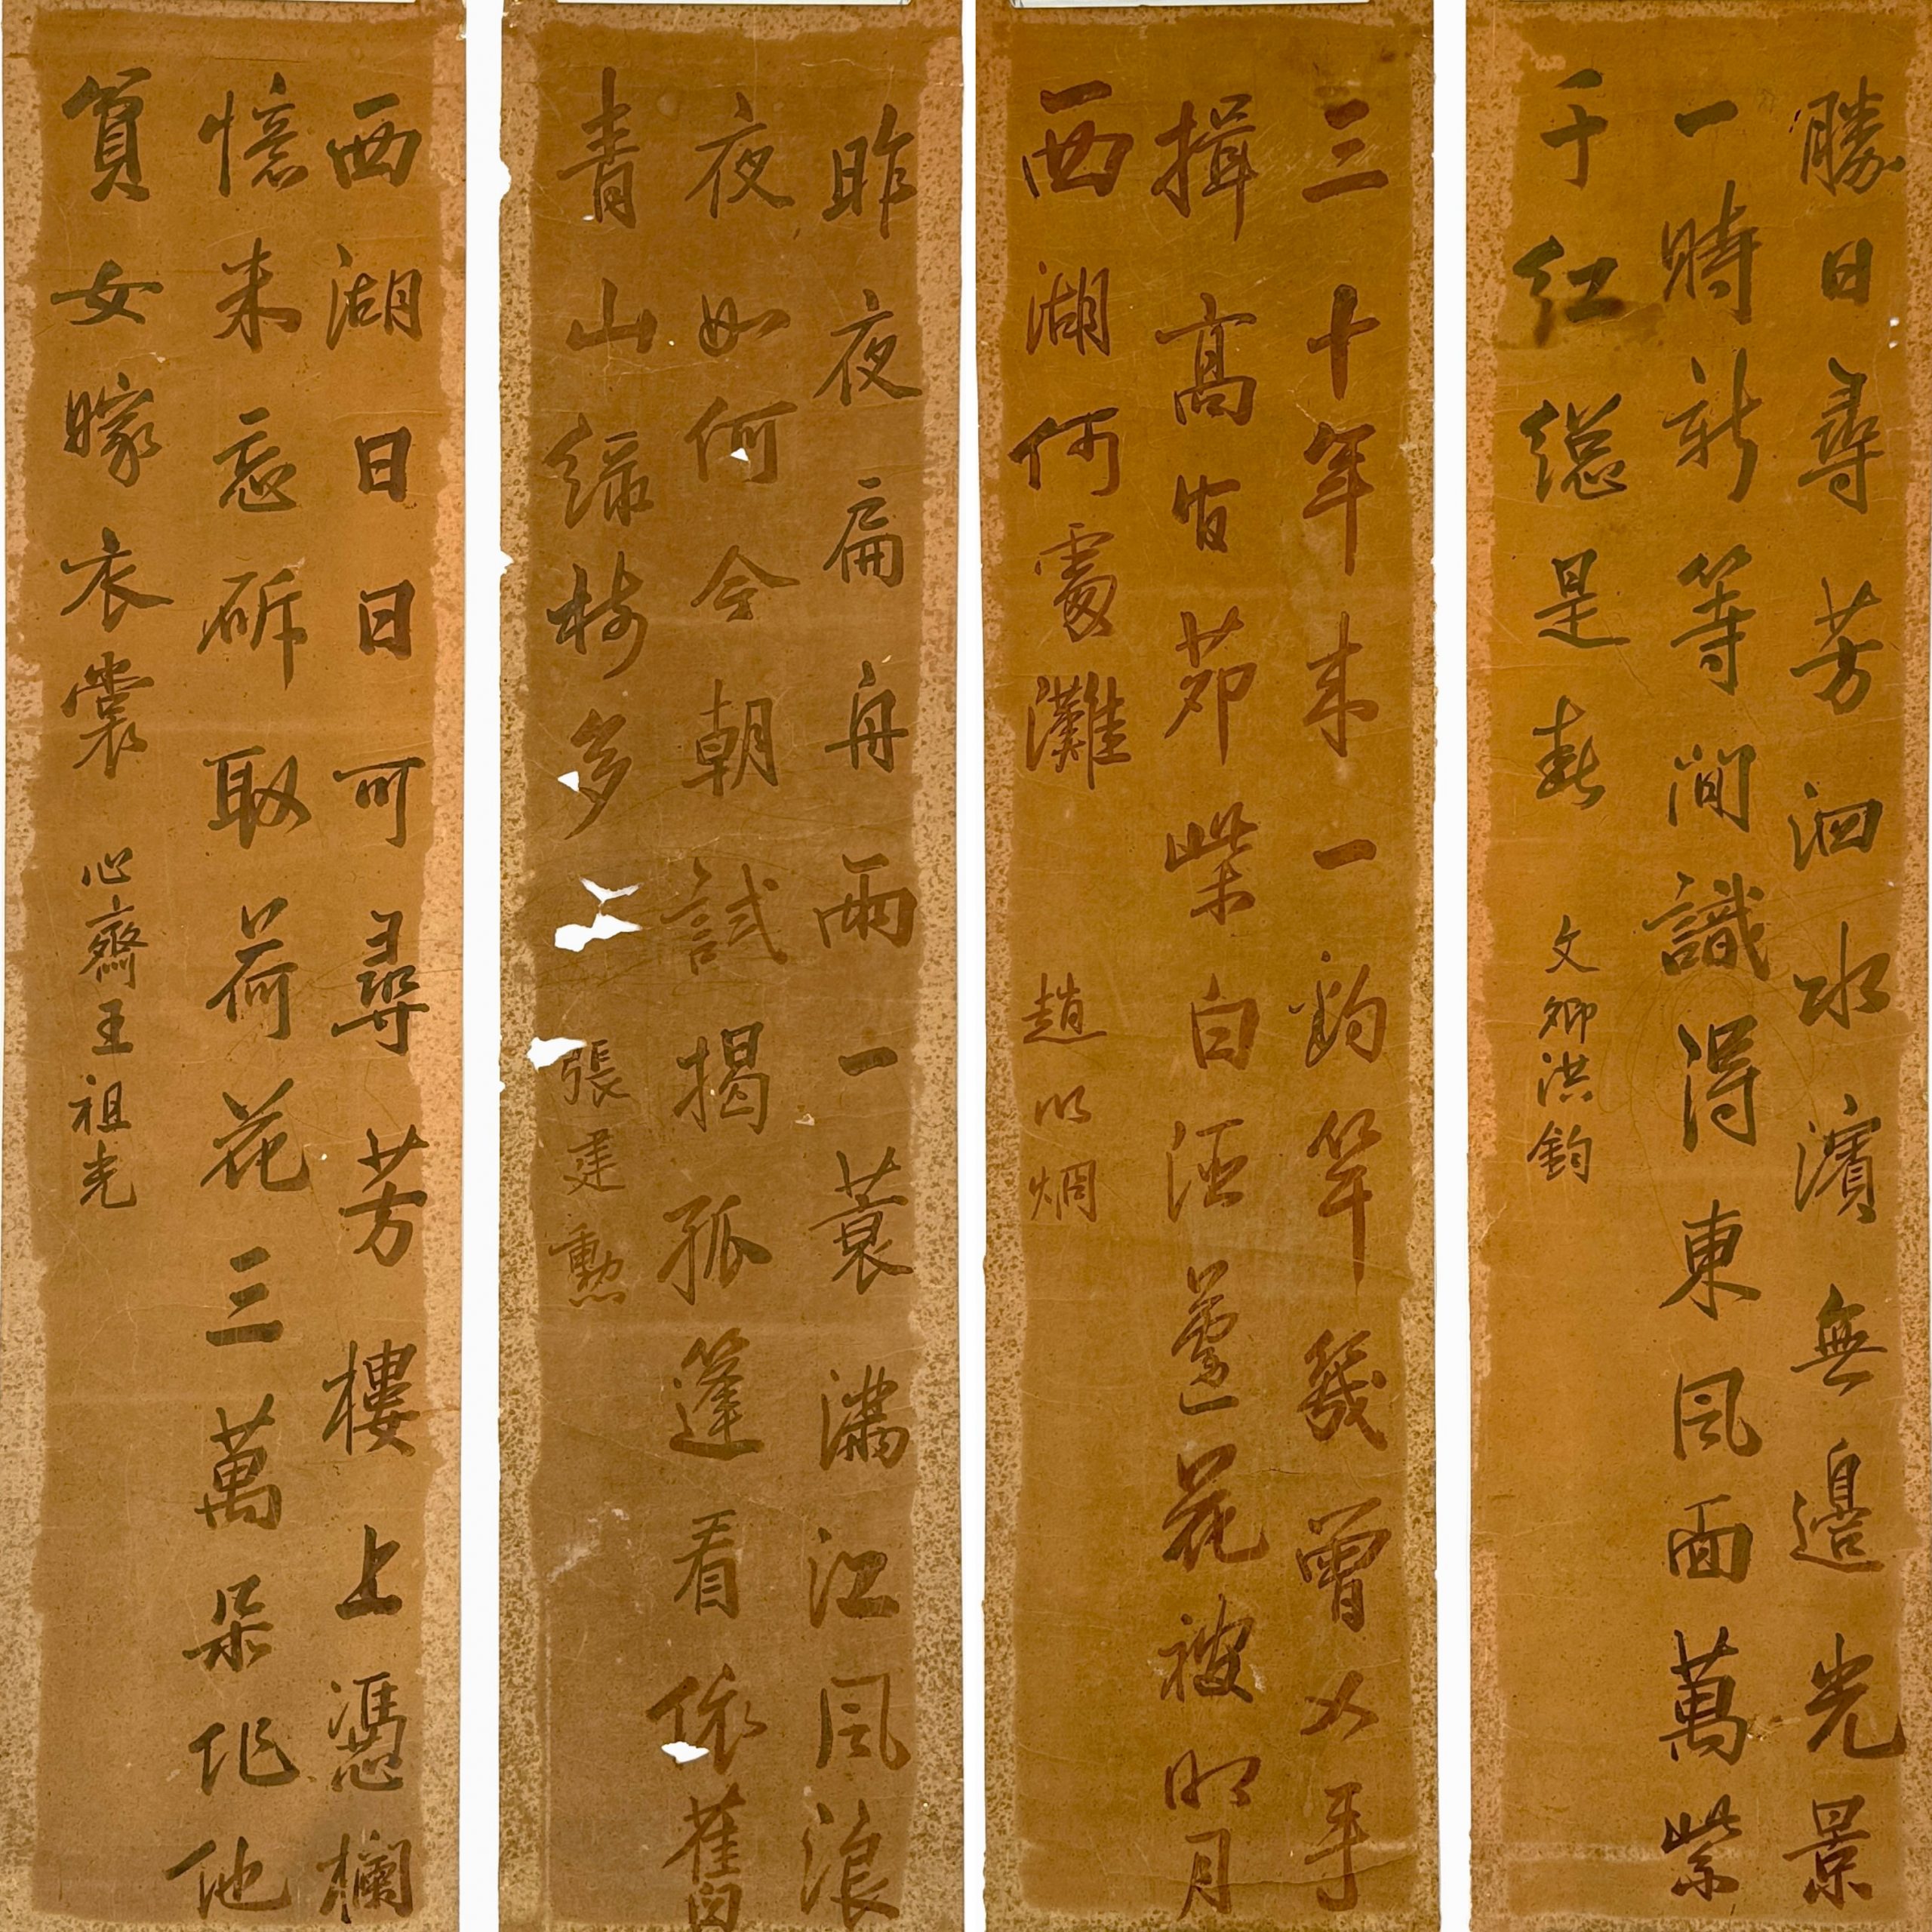 勝日尋芳泗水濱無邊光景
一時新等閒識得東風面萬紫
千紅總是春 文卿洪鈞
三十年來一釣竿幾曾叉手
揖高官茆柴白酒蘆花被明月
西湖何處灘 趙以烱
昨夜扁舟雨一蓑滿江風浪
夜如何今朝試揭孤篷看依舊
青山綠樹多 張建勳
西湖日日可尋芳樓上憑欄
憶未忘斫取荷花三萬朵作他
貧女嫁衣裳 心齋王祖光